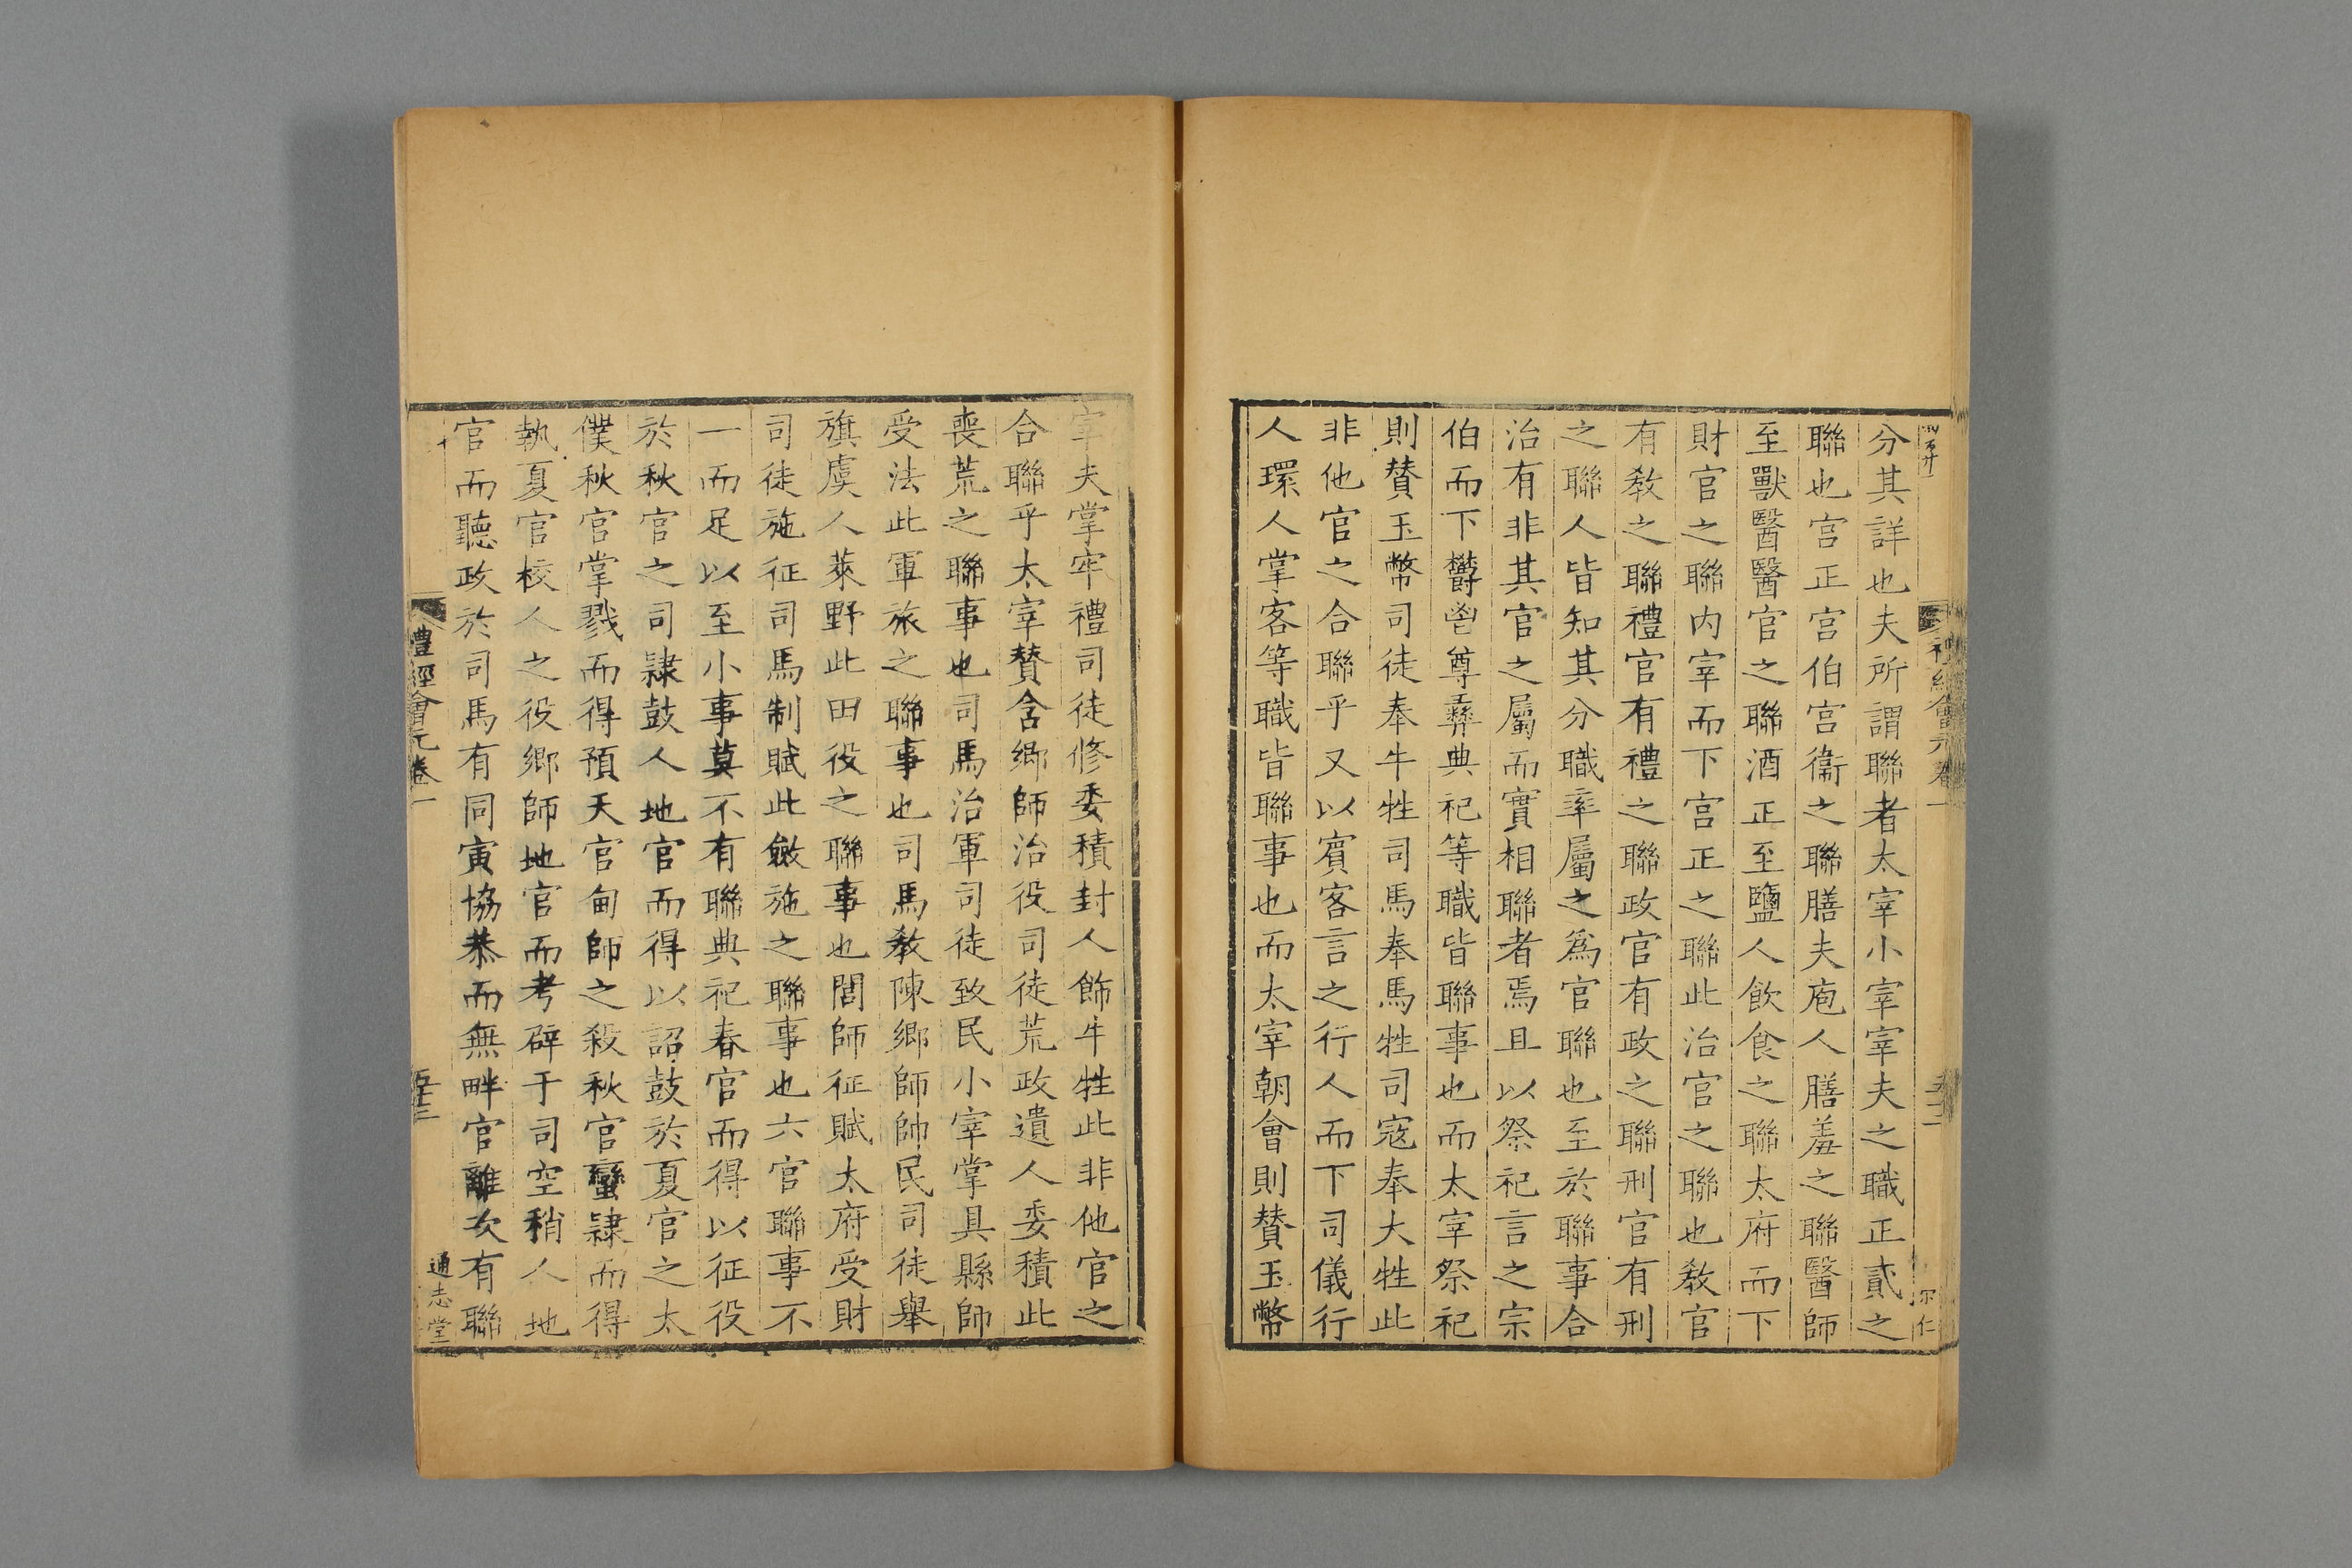 分其詳也夫所謂聯者太宰小宰宰夫之職正貳之
聯也宫正宫伯宫衞之聯膳夫庖人膳羞之聯醫師
至獸醫醫官之聯酒正至鹽人飲食之聯太府而下
財官之聯内宰而下宫正之聯此治官之聯也敎官
有敎之聯禮官有禮之聯政官有政之聯刑官有刑
之聯人皆知其分職率屬之爲官聯也至於聯事合
治有非其官之屬而實相聯者焉且以祭祀言之宗
伯而下欝鬯尊彞典祀等職皆聯事也而太宰祭祀
則賛玉幣司徒奉牛牲司馬奉馬牲司寇奉犬牲此
非他官之合聯乎又以賓客言之行人而下司儀行
人環人掌客等職皆聯事也而太宰朝會則賛玉幣
宰夫掌牢禮司徒修委積封人飾牛牲此非他官之
合聯乎太宰賛含鄉師治役司徒荒政遺人委積此
喪荒之聯事也司馬治軍司徒致民小宰掌具縣師
受法此軍旅之聯事也司馬敎陳鄉師帥民司徒舉
旗虞人萊野此田役之聯事也閭師征賦太府受財
司徒施征司馬制賦此斂施之聯事也六官聯事不
一而足以至小事莫不有聯典祀春官而得以征役
於秋官之司隷鼓人地官而得以詔鼓於夏官之太
僕秋官掌戮而得預天官甸師之殺秋官蠻隷而得
執夏官校人之役鄉師地官而考辟于司空稍人地
官而聽政於司馬有同寅協恭而無畔官離次有聯
禮經會元卷一
五十三
通志堂